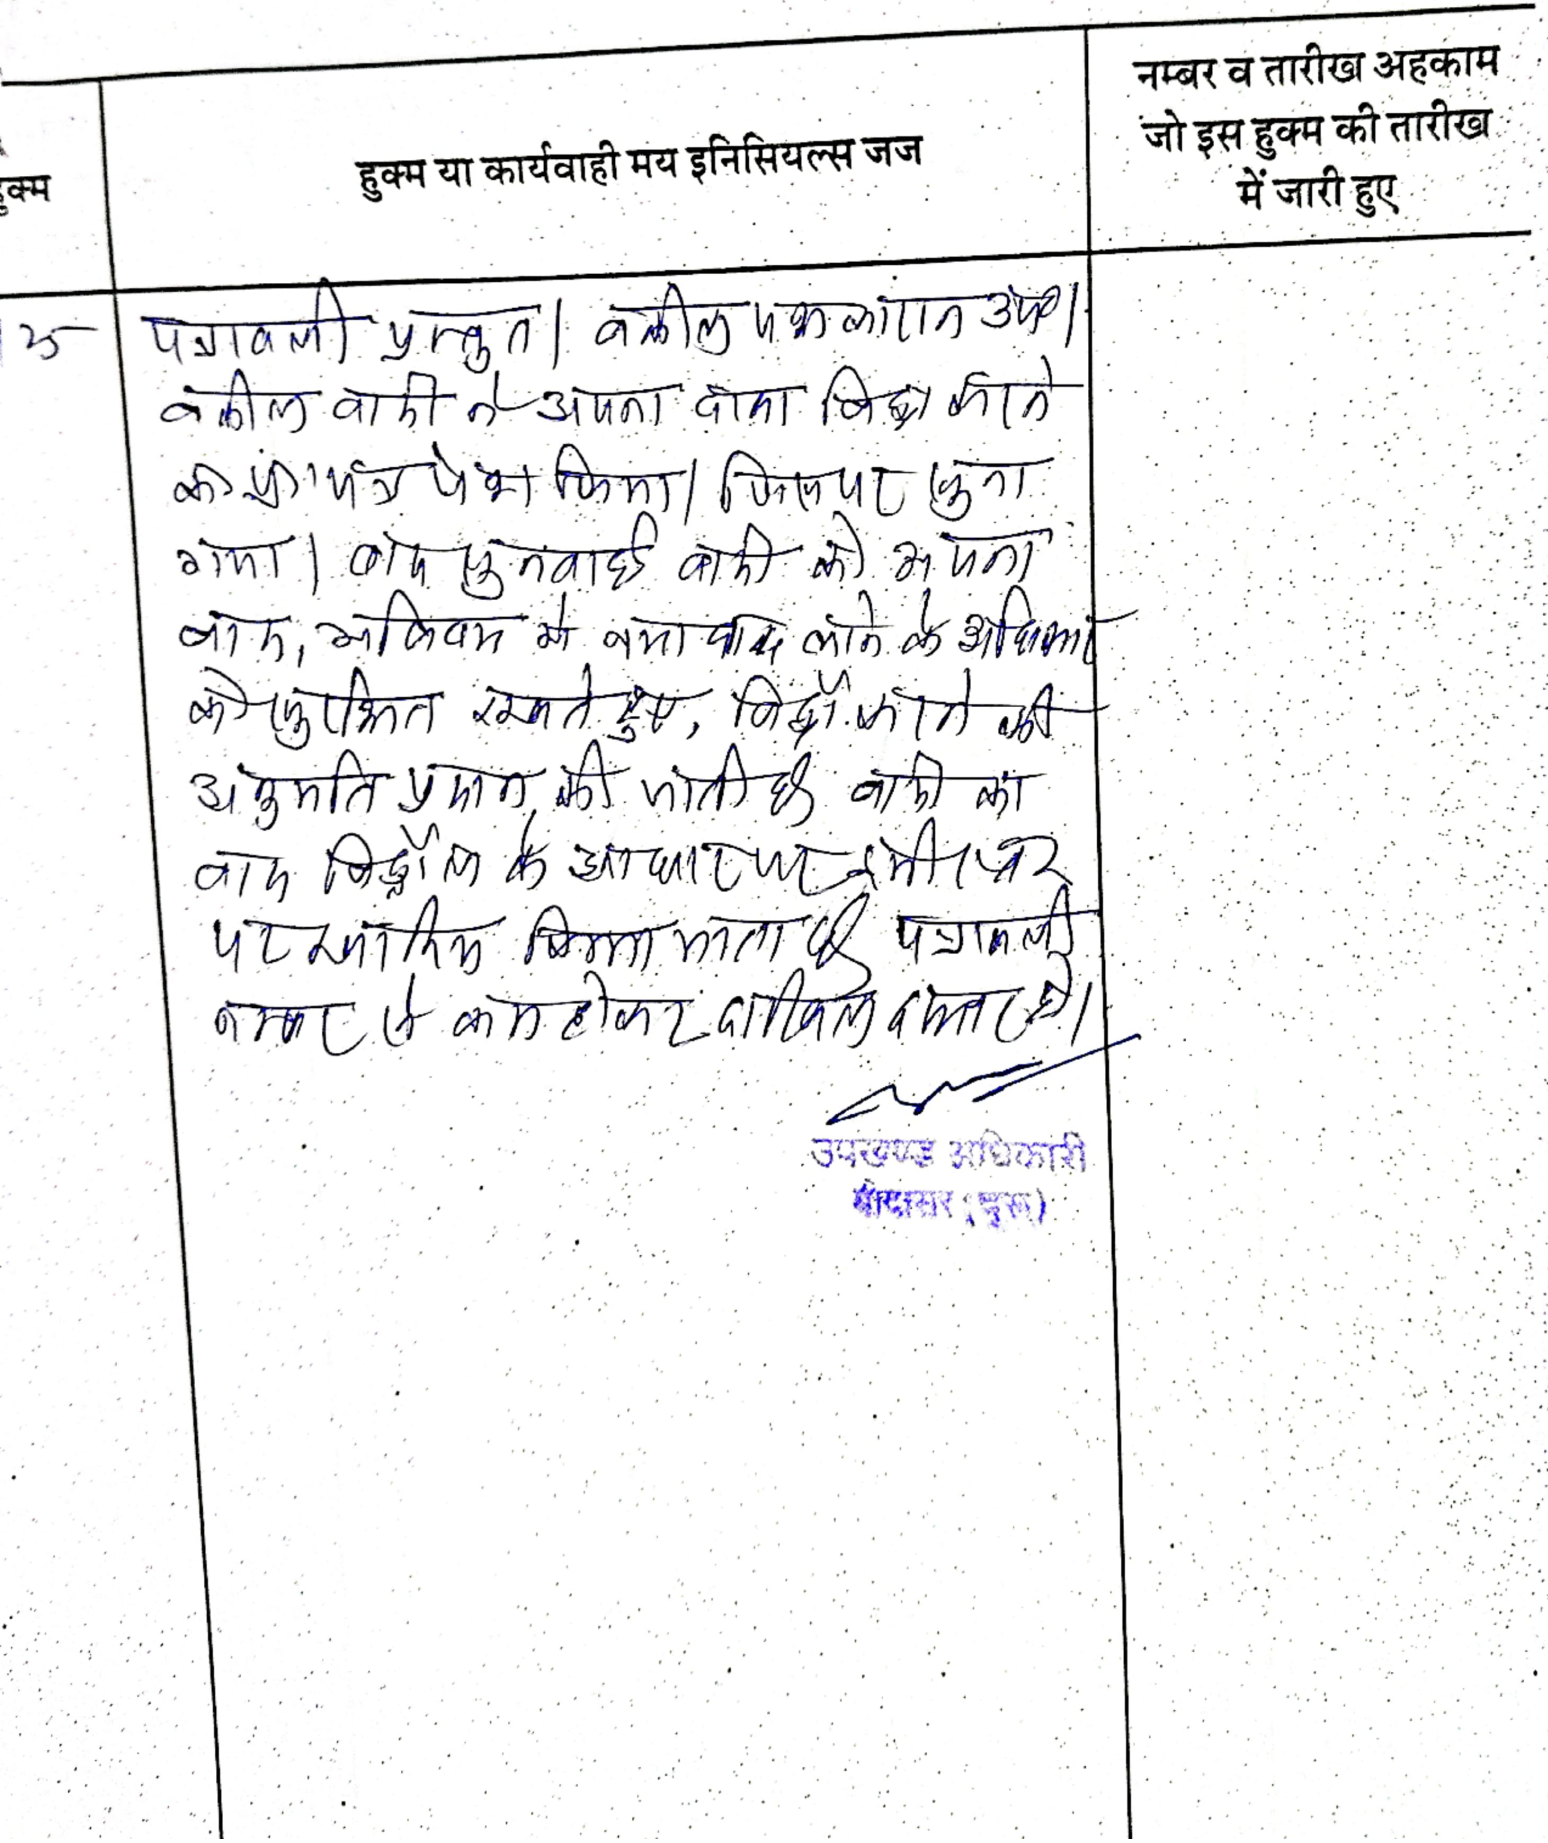 हुक्म
हुक्म या कार्यवाही मय इनिसियल्स जज
नम्बर व तारीख अहकाम
जो इस हुक्म की तारीख
में जारी हुए
पत्रावली प्रस्तुत। वकील पक्षकारान उप०।
वकील वादी ने अपना दावा विड्रा करने
का प्रा० पत्र पेश किया। जिस पर सुना
गया। बाद सुनवाई वादी को अपना
वाद, भविष्य में नया वाद लाने के अधिकार
को सुरक्षित रखते हुए, विड्रॉ करने की
अनुमति प्रदान की जाती है वादी का
वाद विड्रॉल के आधार पर इसी स्तर
पर खारिज किया जाता है पत्रावली
नम्बर से कम होकर दाखिल दफ्तर हो।
उपखण्ड अधिकारी
बीदासर (चुरू)